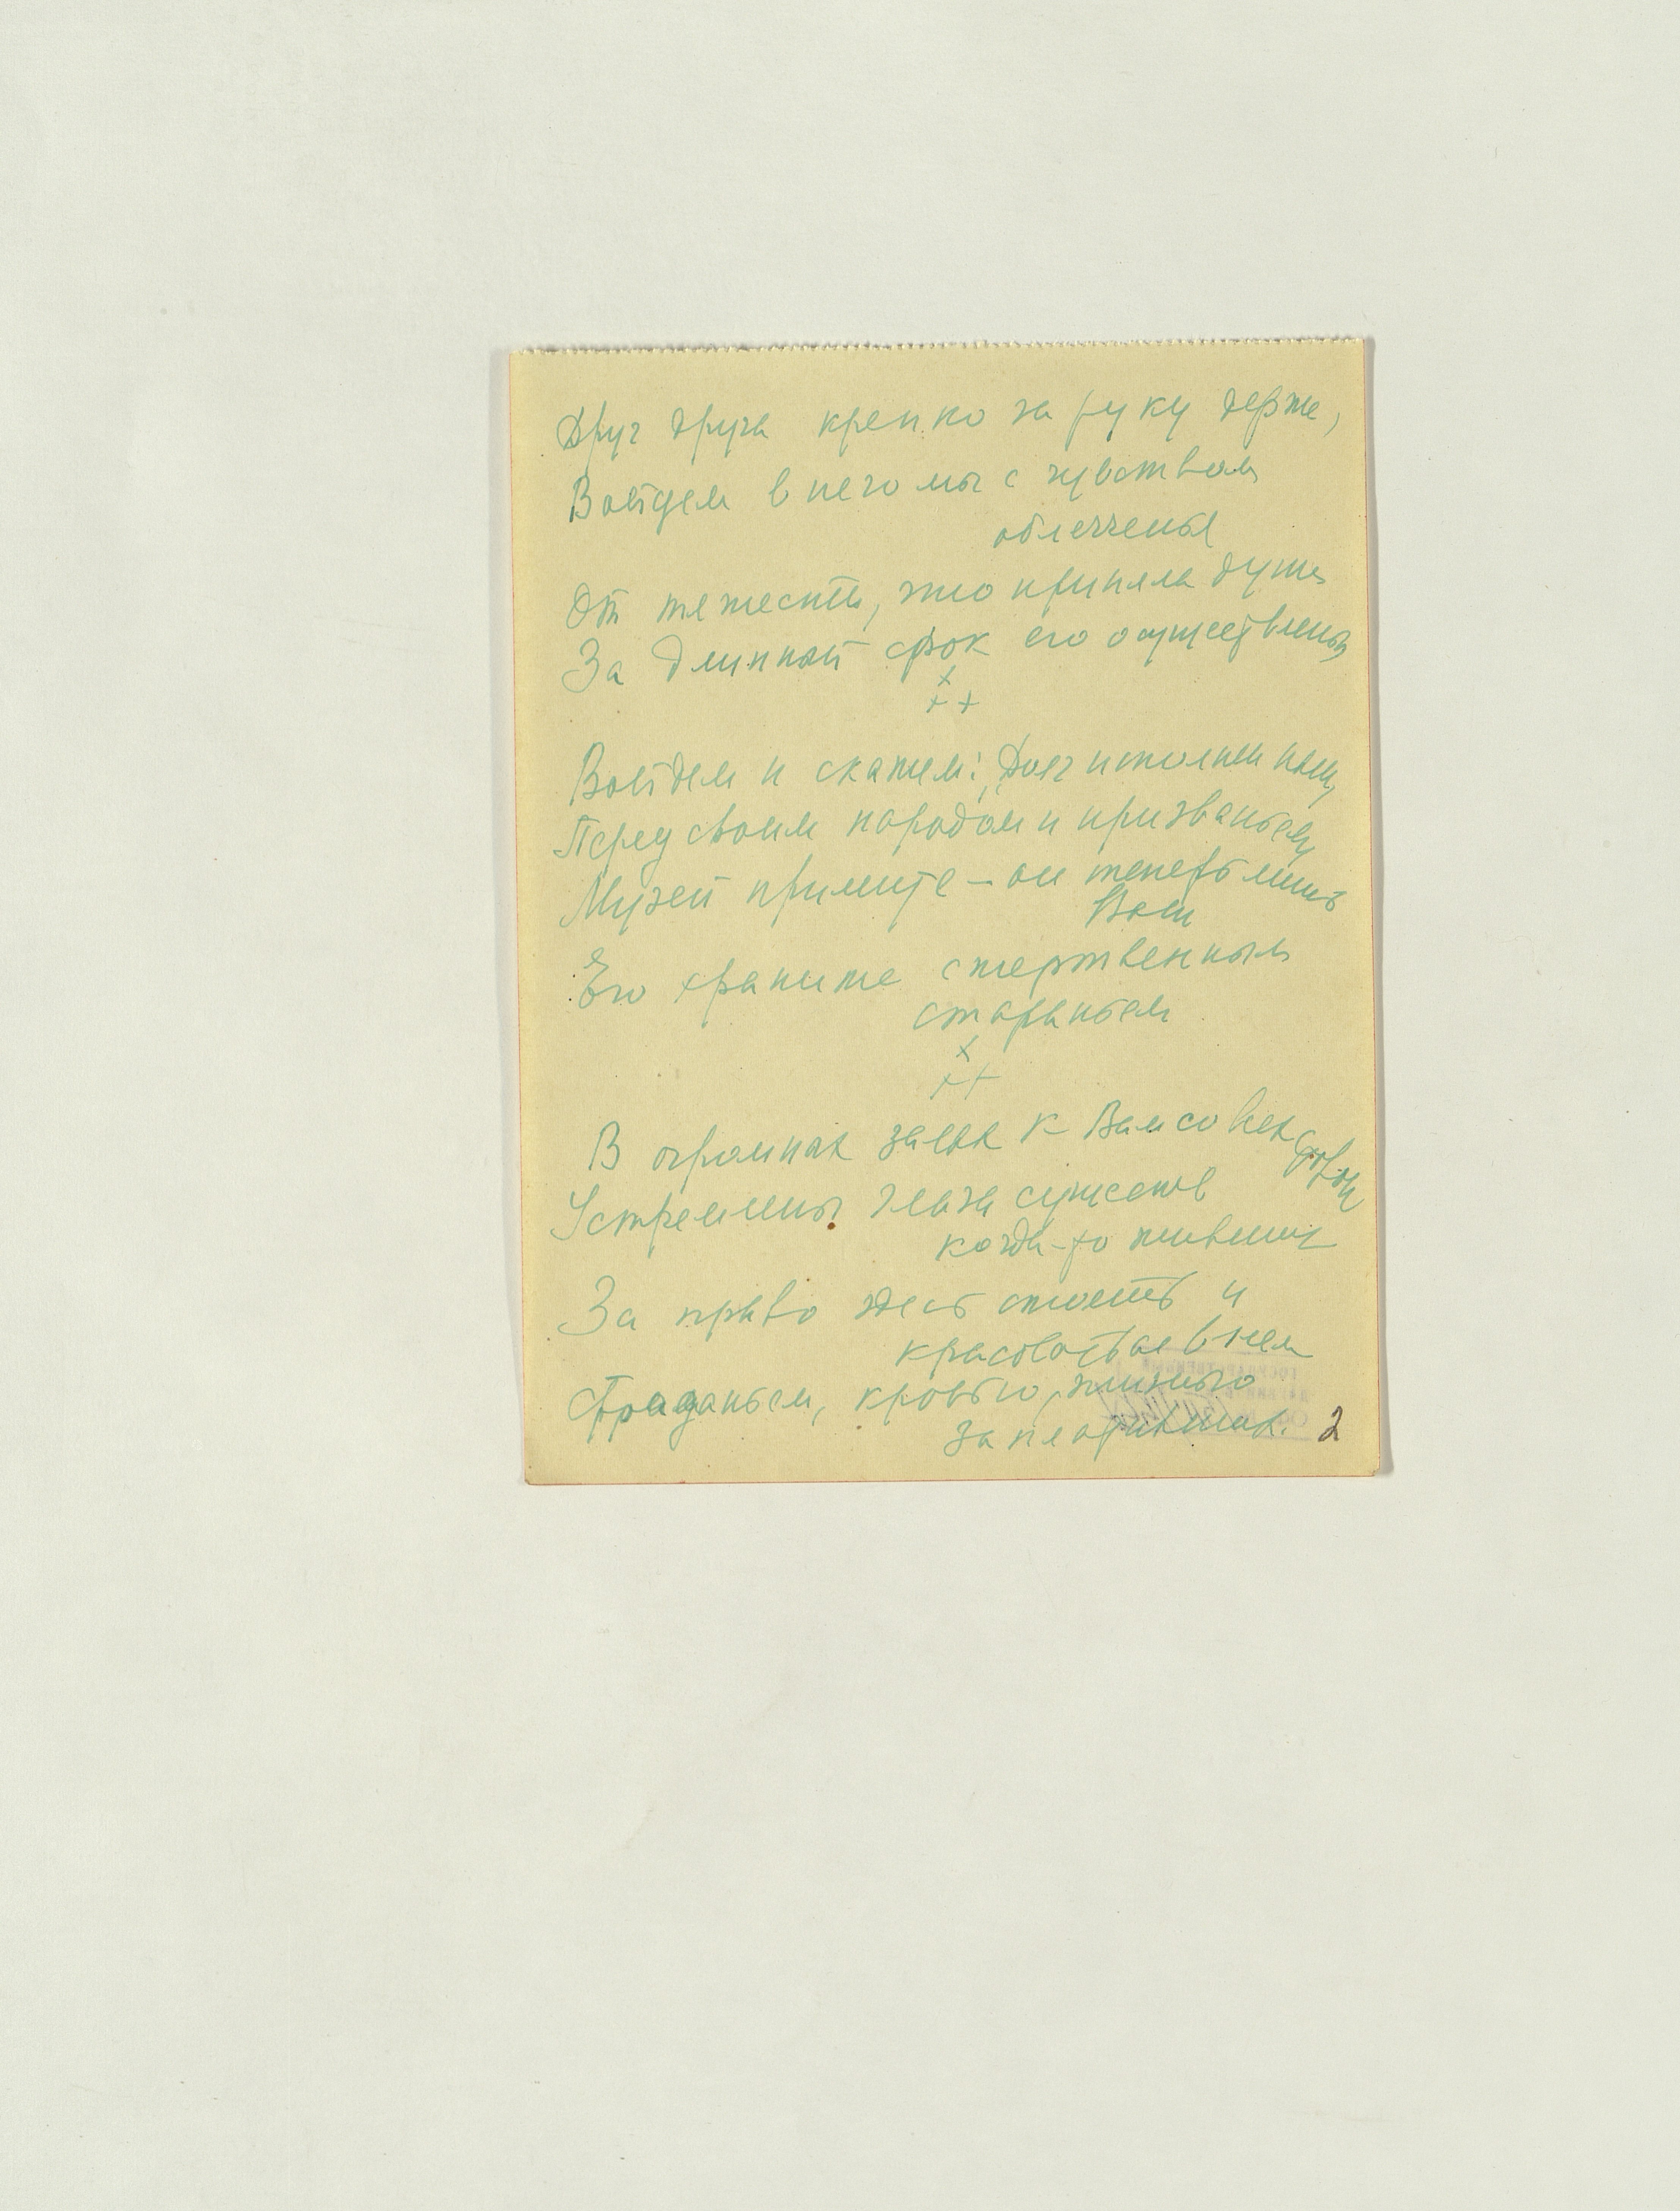 Друг друга крепко за руку держа,
Войдем в него мы с чувством
облегченья
От тяжести, что приняла душа
За длинный срок его осуществленья
х
х х
Войдем и скажем: „Долг исполнен наш,
Перед своим народом и призваньем,
Музей примите – он теперь лишь
Ваш
Его храните с жертвенным
стараньем
х
х х
В огромных залах к Вам со всех сторон
Устремлены глаза существ
когда-то живших
За право здесь стоять и
красоваться в нем
Страданьем, кровью, жизнью
заплативших.
2